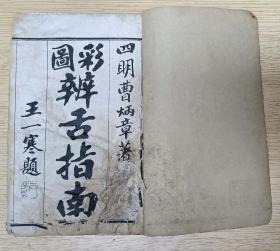 四明曹炳章著
彩圖
辨舌指南
王一寒題